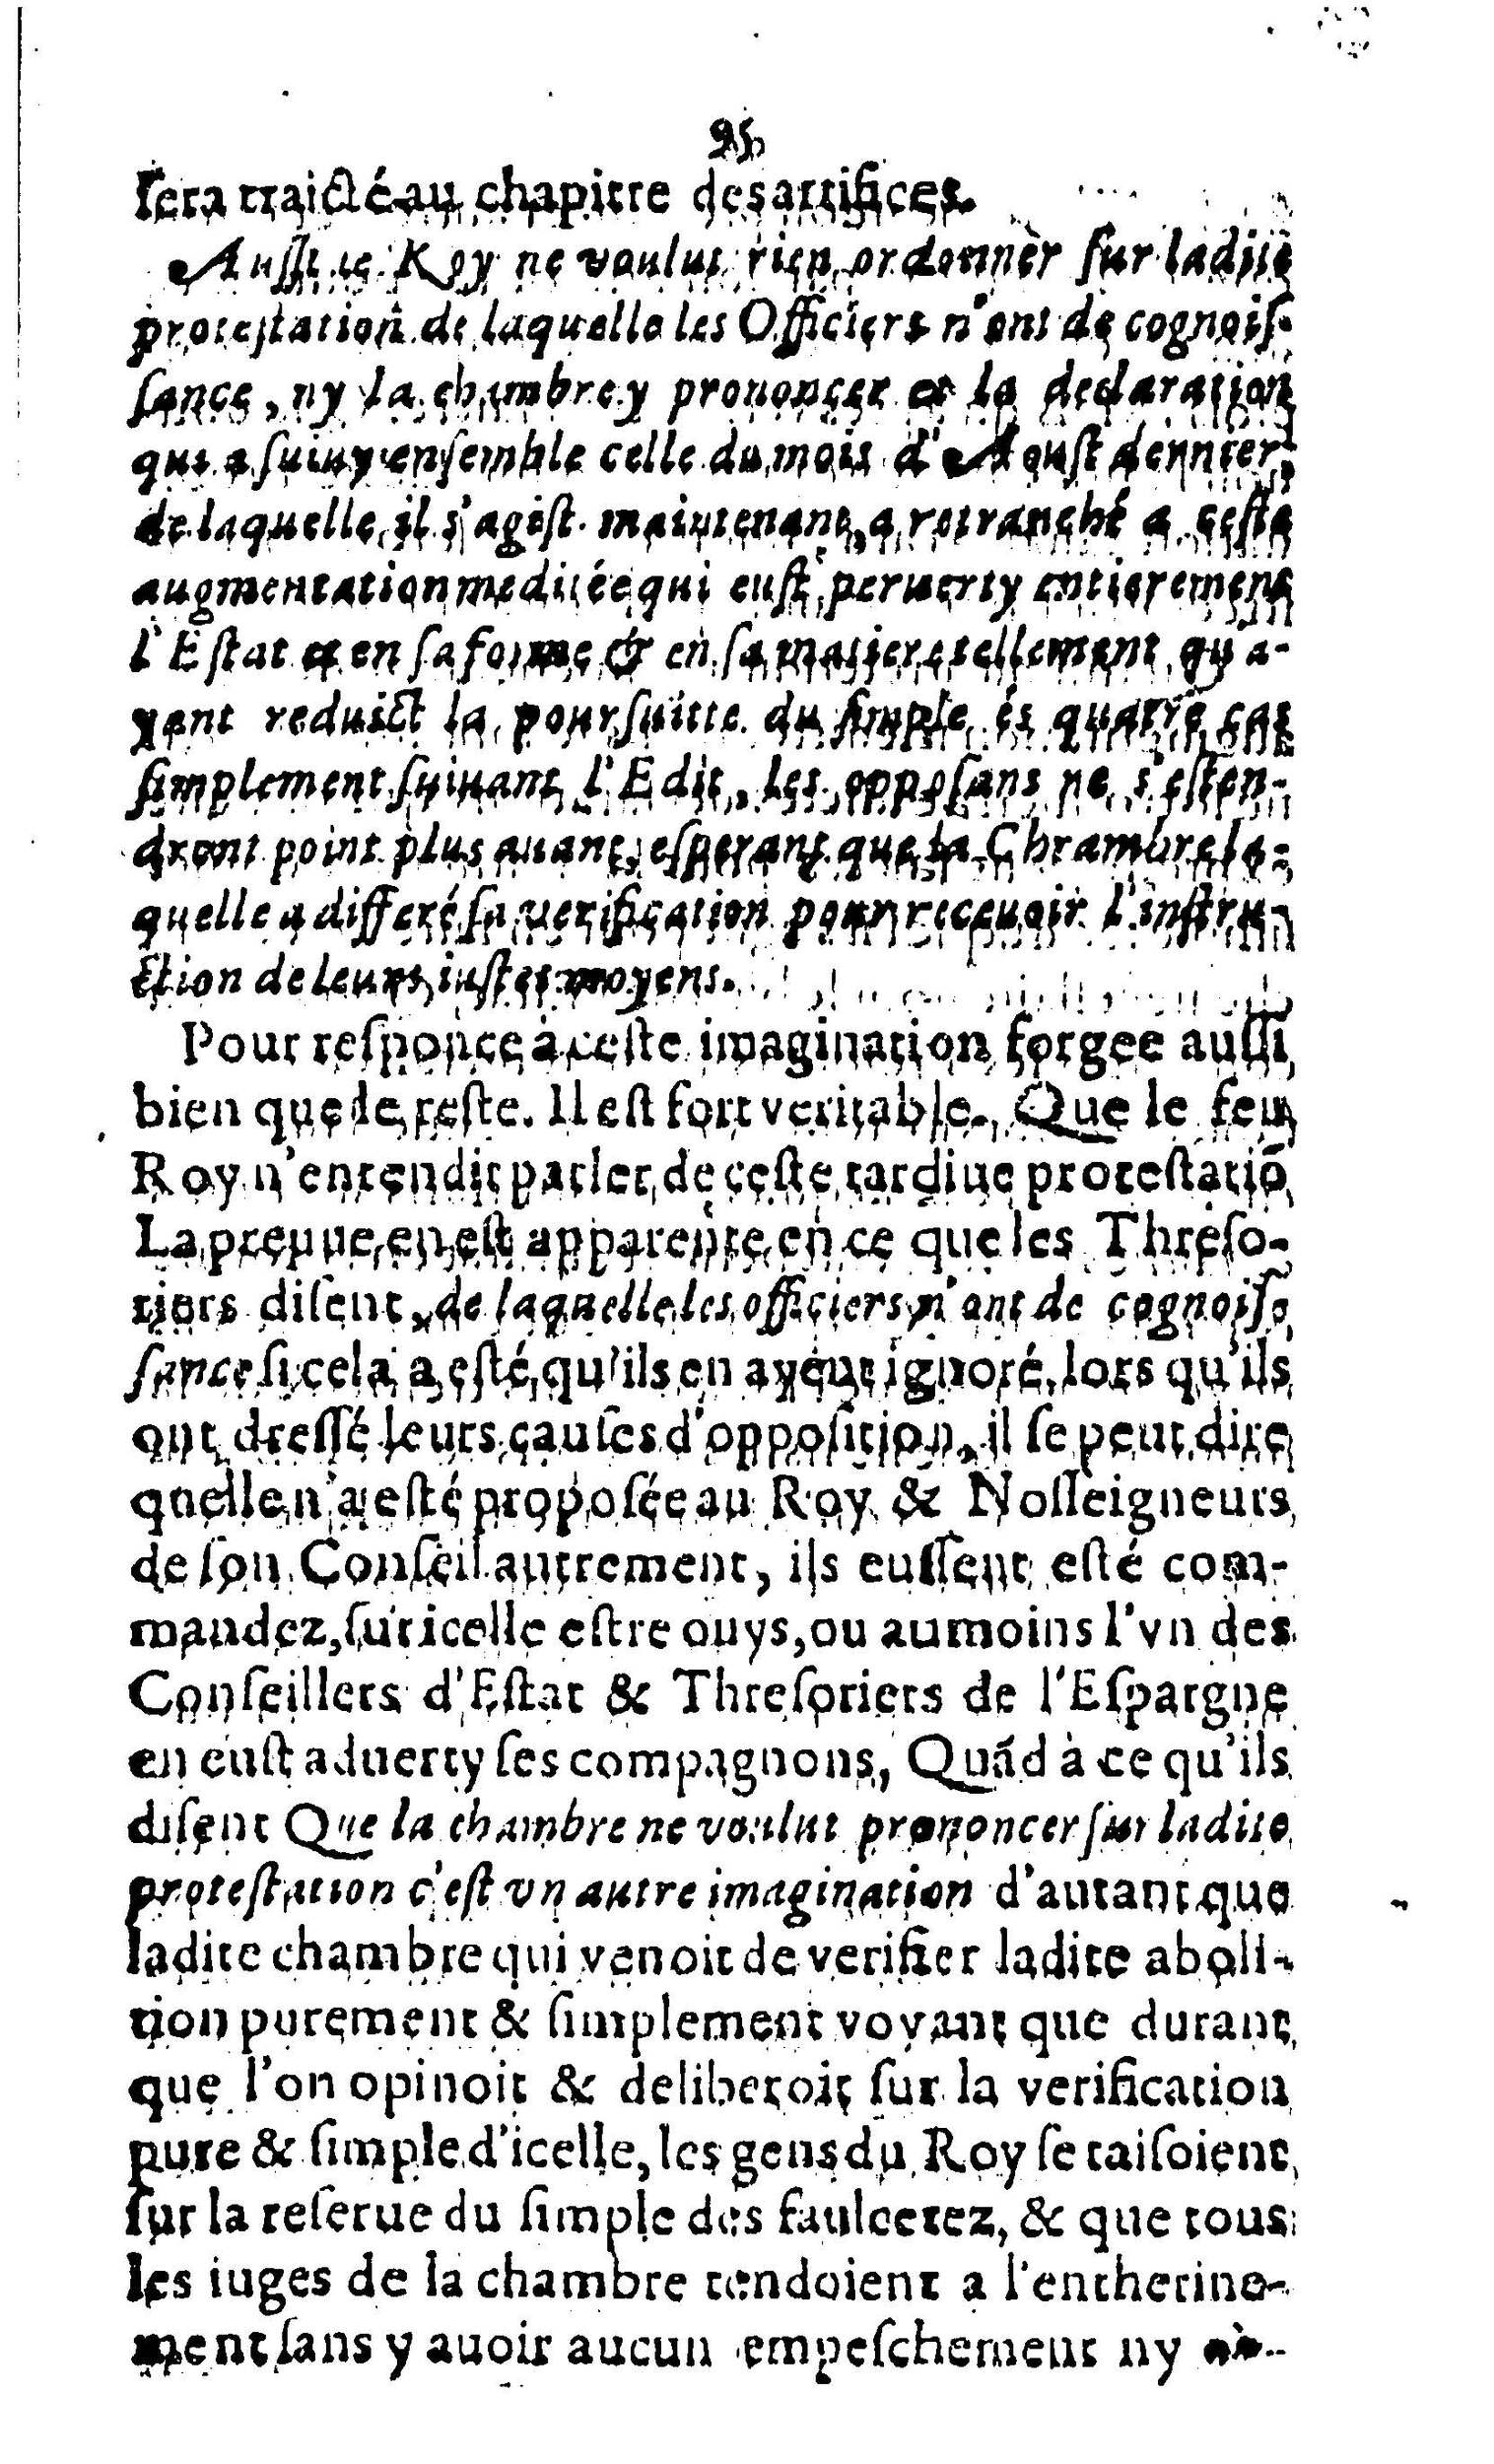 95
sera traicté au chapitre des artifices.
Aussi le Roy ne voulut rien ordonner sur ladite
protestation de laquelle les Officiers n'ont de cognoiſ-
ſance, ny la chambre y prononcer et la declaration
qui a ſuiuy enſemble celle du mois d'Aouſt dernier,
de laquelle il s'agiſt maintenant, a retranché a ceſte
augmentation meditée qui euſt peruerty entierement
l'Eſtat et en ſa forme & en ſa matiere tellement qu'a-
yant reduict la pourſuitte du ſimple és quatre cas
ſimplement ſuiuant l'Edit, les oppoſans ne s'eſten-
dront point plus auant, eſperant que la Chrambre la-
quelle a differé ſa verification pour receuoir l'inſtru-
ction de leurs iuſtes moyens.
Pour reſponce à ceſte imagination forgee auſſi
bien que le reſte. Il eſt fort veritable, Que le feu
Roy n'entendit parler de ceſte tardiue proteſtatiõ
La preuue en eſt apparente en ce que les Threſo-
riers diſent, de laquelle les officiers n'ont de cognoiſ-
ſance ſi cela a eſté, qu'ils en ayent ignoré, lors qu'ils
ont dreſſé leurs cauſes d'oppoſition, il ſe peut dire
quelle n'a eſté propoſée au Roy & Noſſeigneurs
de ſon Conſeil autrement, ils euſſent eſté com-
mandez, ſur icelle eſtre ouys, ou aumoins l'vn des
Conſeillers d'Eſtat & Threſoriers de l'Eſpargne
en euſt aduerty ſes compagnons, Quãd à ce qu'ils
diſent Que la chambre ne voulut prononcer ſur ladite
proteſtation c'eſt vn autre imagination d'autant que
ladite chambre qui venoit de verifier ladite aboli-
tion purement & ſimplement voyant que durant
que l'on opinoit & deliberoit ſur la verification
pure & ſimple d'icelle, les gens du Roy ſe taiſoient
ſur la reſerue du ſimple des faulcetez, & que tous
les iuges de la chambre tendoient a l'entherine-
ment ſans y auoir aucun empeſchement ny